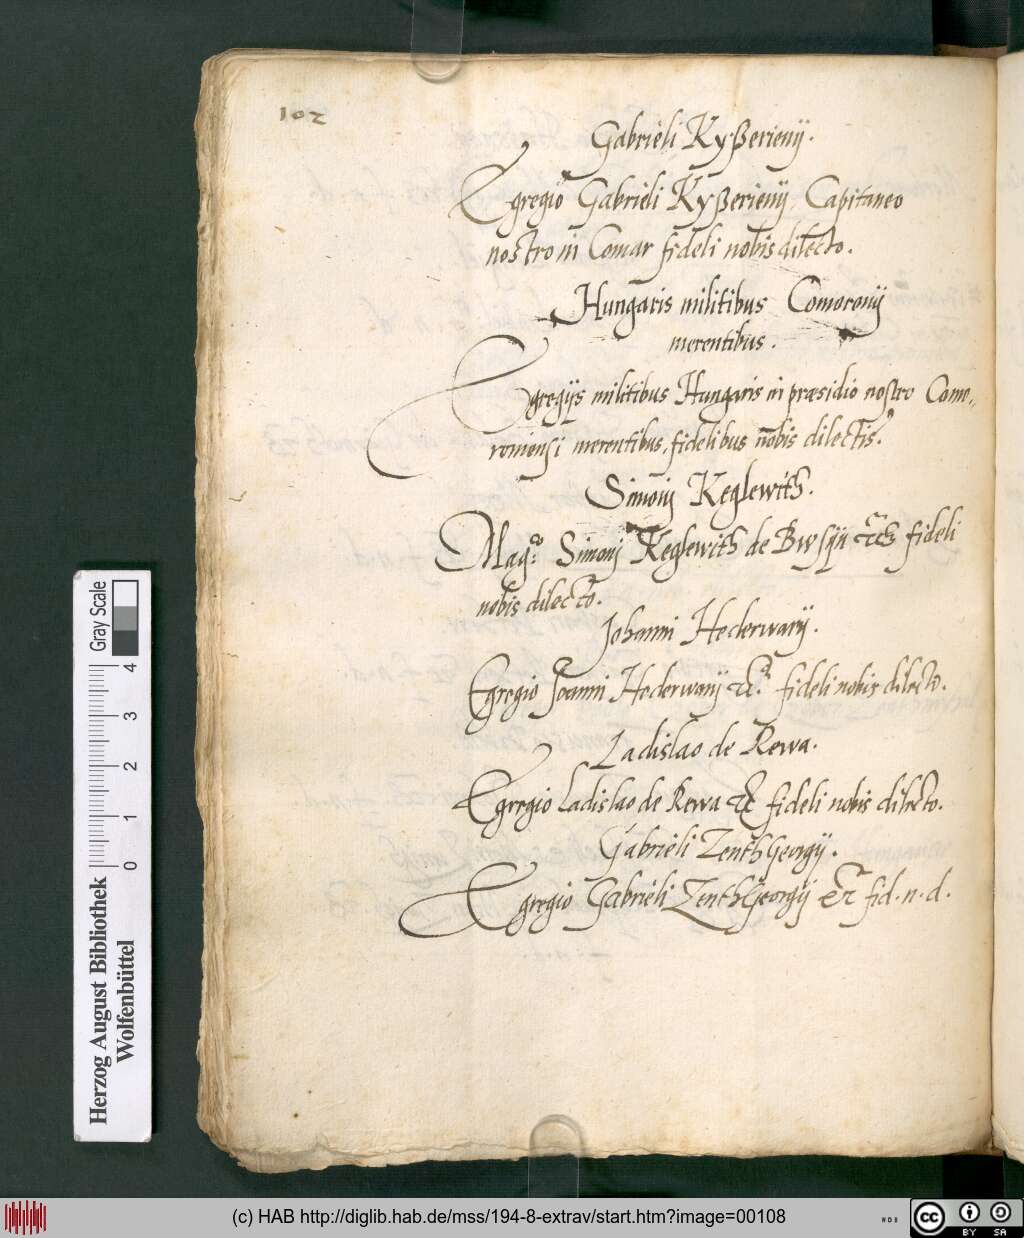 102
Gabrieli Kyßerienÿ.
Egregio Gabrieli Kyßerienÿ Capitaneo
nostro in Comar fideli nobis dilecto.
Hungaris militibus Comoronÿ
merentibus.
Egregÿs militibus Hungaris in præsidio nostro Como„
roniensi merentibus, fidelibus nobis dilectis.
Simonj Keglewith.
Simonj Keglewith de Bwsÿn fideli
nobis dilecto.
Johanni Hederwarÿ.
Egregio Joanni Hederwarÿ &c. fideli nobis dilecto.
Ladislao de Rewa.
Egregio Ladislao de Rewa &c fideli nobis dilecto.
Gabrieli ZenthGeorgÿ.
Egregio Gabrieli ZenthGeorgÿ &c fid. n. d.
Gray Scale
0 1 2 3 4
Herzog August Bibliothek
Wolfenbüttel
(c) HAB http://diglib.hab.de/mss/194-8-extrav/start.htm?image=00108
cc BY SA